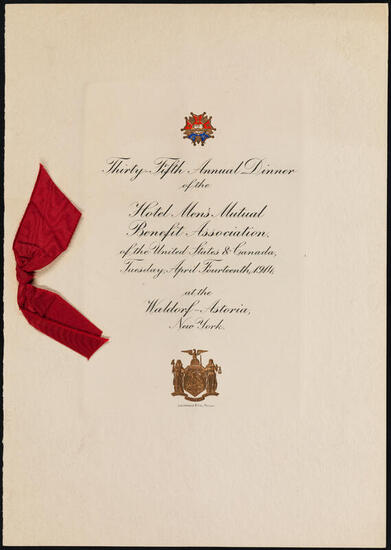 Thirty-Fifth Annual Dinner
of the
Hotel Men's Mutual
Benefit Association,
of the United States & Canada,
Tuesday, April Fourteenth, 1914,
at the
Waldorf-Astoria,
New York.